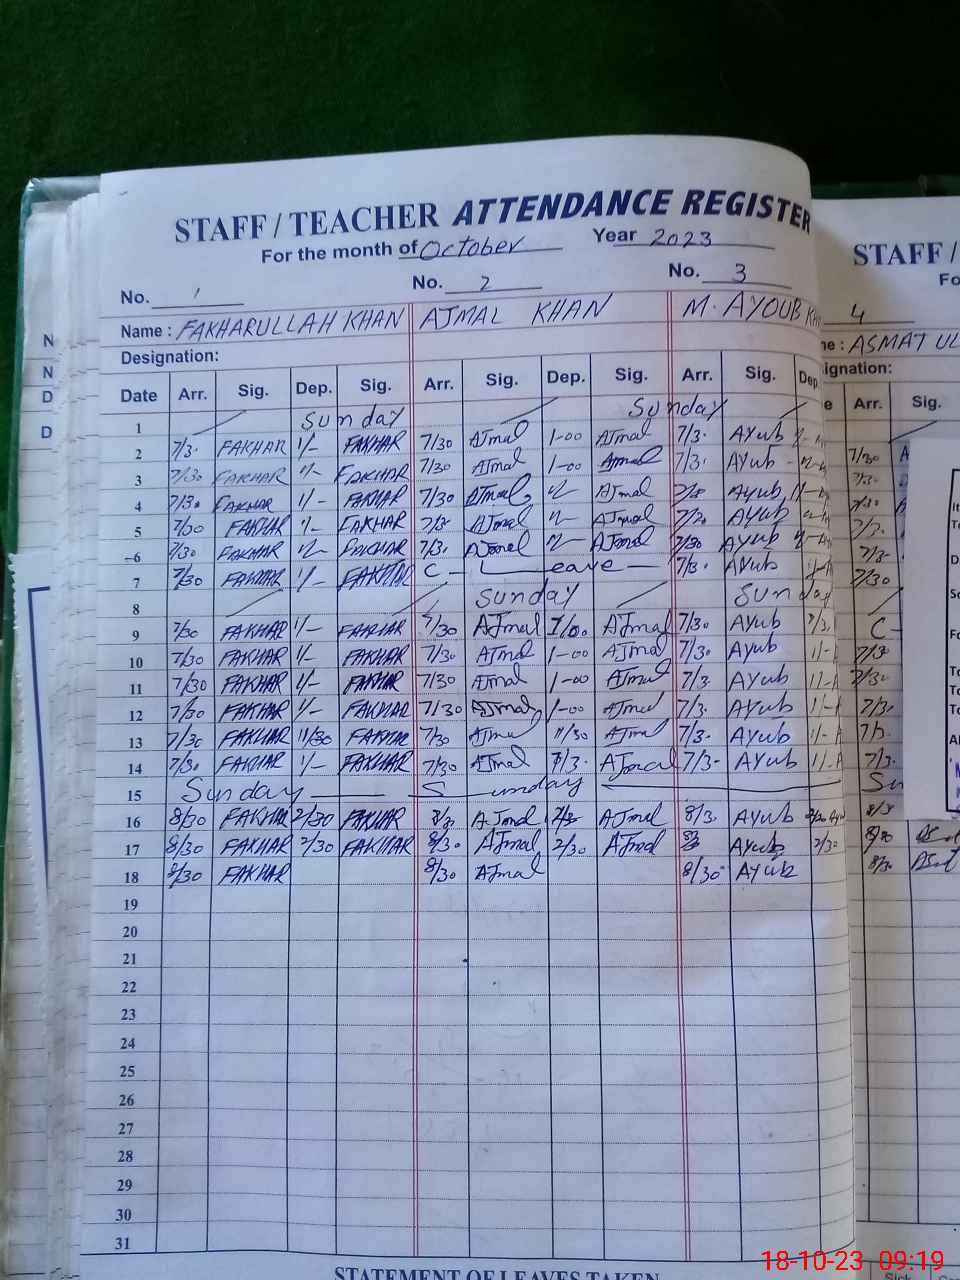 STAFF / TEACHER ATTENDANCE REGISTER
For the month of October Year 2023
No. 1 No. 2 No. 3
Name : FAKHARULLAH KHAN AJMAL KHAN M. AYOUB
Designation:
Date Arr. Sig. Dep. Sig. Arr. Sig. Dep. Sig. Arr. Sig. Dep
1 Sunday Sunday
2 7/3. FAKHAR 1/- FAKHAR 7/30 AJmal 1-00 AJmal 7/3. AYub
3 7/30 FAKHAR 1/- FAKHAR 7/30 AJmal 1-00 AJmal 7/3. AYub
4 7/30 FAKHAR 1/- FAKHAR 7/30 AJmal AJmal AYub
5 7/30 FAKHAR 1/- FAKHAR AJmal AJmal AYub
6 7/30 FAKHAR FAKHAR 7/3. AJmal AJmal 7/30 AYub
7 7/30 FAKHAR 1/- FAKHAR C - Leave - 7/3. AYub
8 Sunday Sunday
9 7/30 FAKHAR 1/- FAKHAR 7/30 AJmal AJmal 7/30 AYub
10 7/30 FAKHAR 1/- FAKHAR 7/30 AJmal 1-00 AJmal 7/30 AYub
11 7/30 FAKHAR 1/- FAKHAR 7/30 AJmal 1-00 AJmal 7/3. AYub
12 7/30 FAKHAR 1/- FAKHAR 7/30 AJmal 1-00 AJmal 7/3. AYub
13 7/30 FAKHAR 11/30 FAKHAR 7/30 AJmal 11/30 AJmal 7/3. AYub
14 7/30 FAKHAR 1/- FAKHAR 7/30 AJmal AJmal 7/3- AYub
15 Sunday Sunday
16 8/30 FAKHAR 2/30 FAKHAR 8/30 AJmal AJmal 8/3. AYub
17 8/30 FAKHAR 2/30 FAKHAR 8/30 AJmal 2/30 AJmal AYub 2/30
18 8/30 FAKHAR 8/30 AJmal 8/30 AYub
19
20
21
22
23
24
25
26
27
28
29
30
31
STATEMENT OF LEAVES TAKEN
STAFF /
4
ASMAT UL
Arr. Sig.
7/30
7/30
C -
8/30
18-10-23 09:19